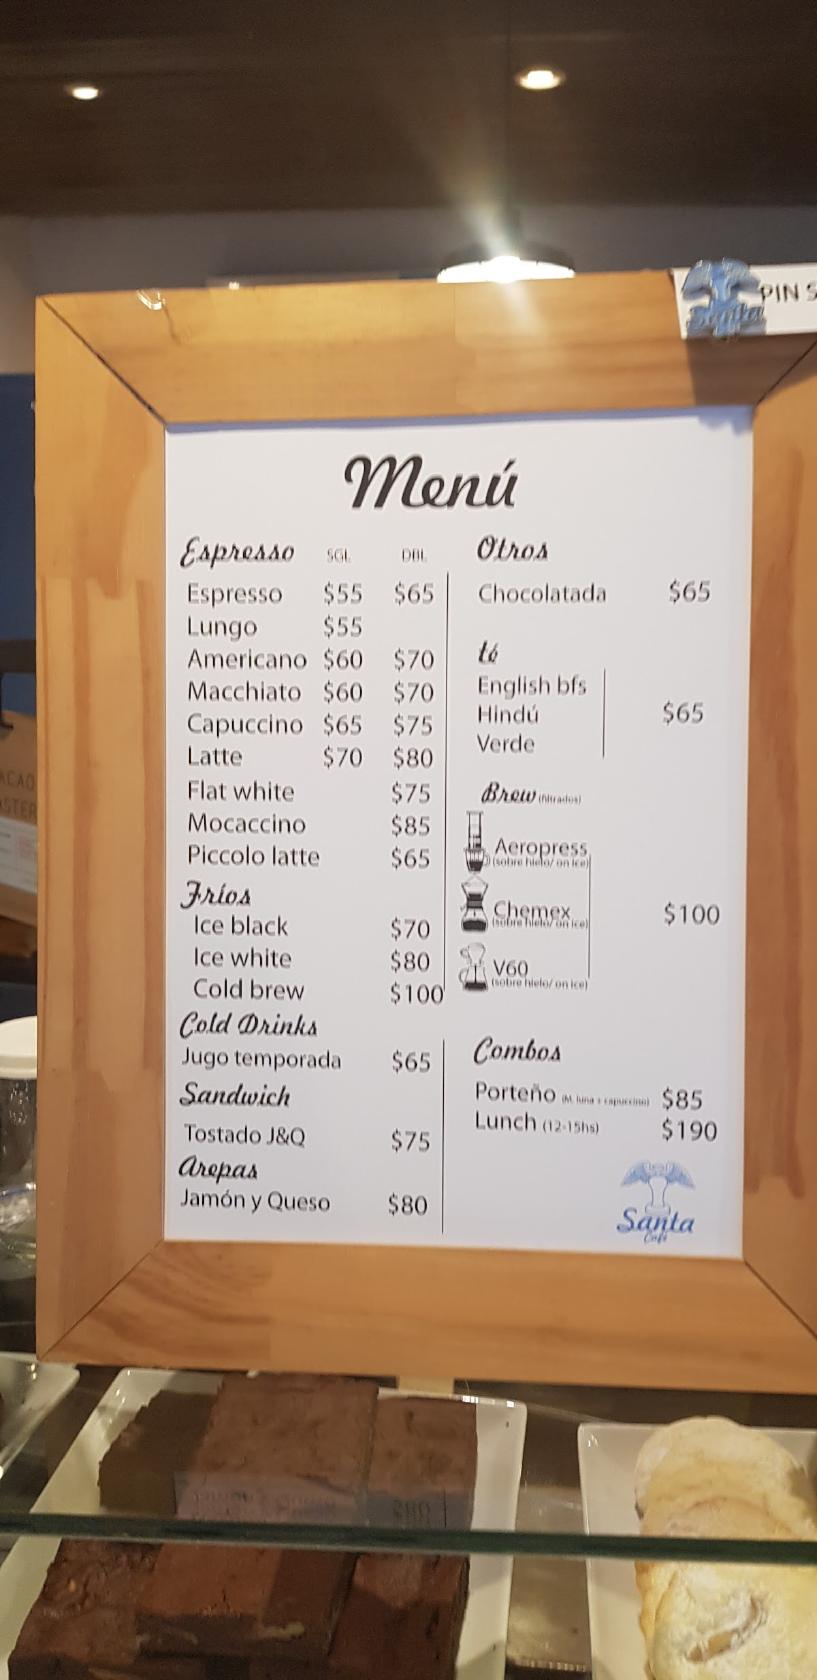 PIN S
Santa
Menú
Espresso SGL DBL
Espresso $55 $65
Lungo $55
Americano $60 $70
Macchiato $60 $70
Capuccino $65 $75
Latte $70 $80
Flat white $75
Mocaccino $85
Piccolo latte $65
Fríos
Ice black $70
Ice white $80
Cold brew $100
Cold Drinks
Jugo temporada $65
Sandwich
Tostado J&Q $75
Arepas
Jamón y Queso $80
Otros
Chocolatada $65
té
English bfs
Hindú $65
Verde
Brew (filtrados)
Aeropress
(sobre hielo/ on ice)
Chemex $100
(sobre hielo/ on ice)
V60
(sobre hielo/ on ice)
Combos
Porteño (M. luna + capuccino) $85
Lunch (12-15hs) $190
Santa
Café
ACAO
STER